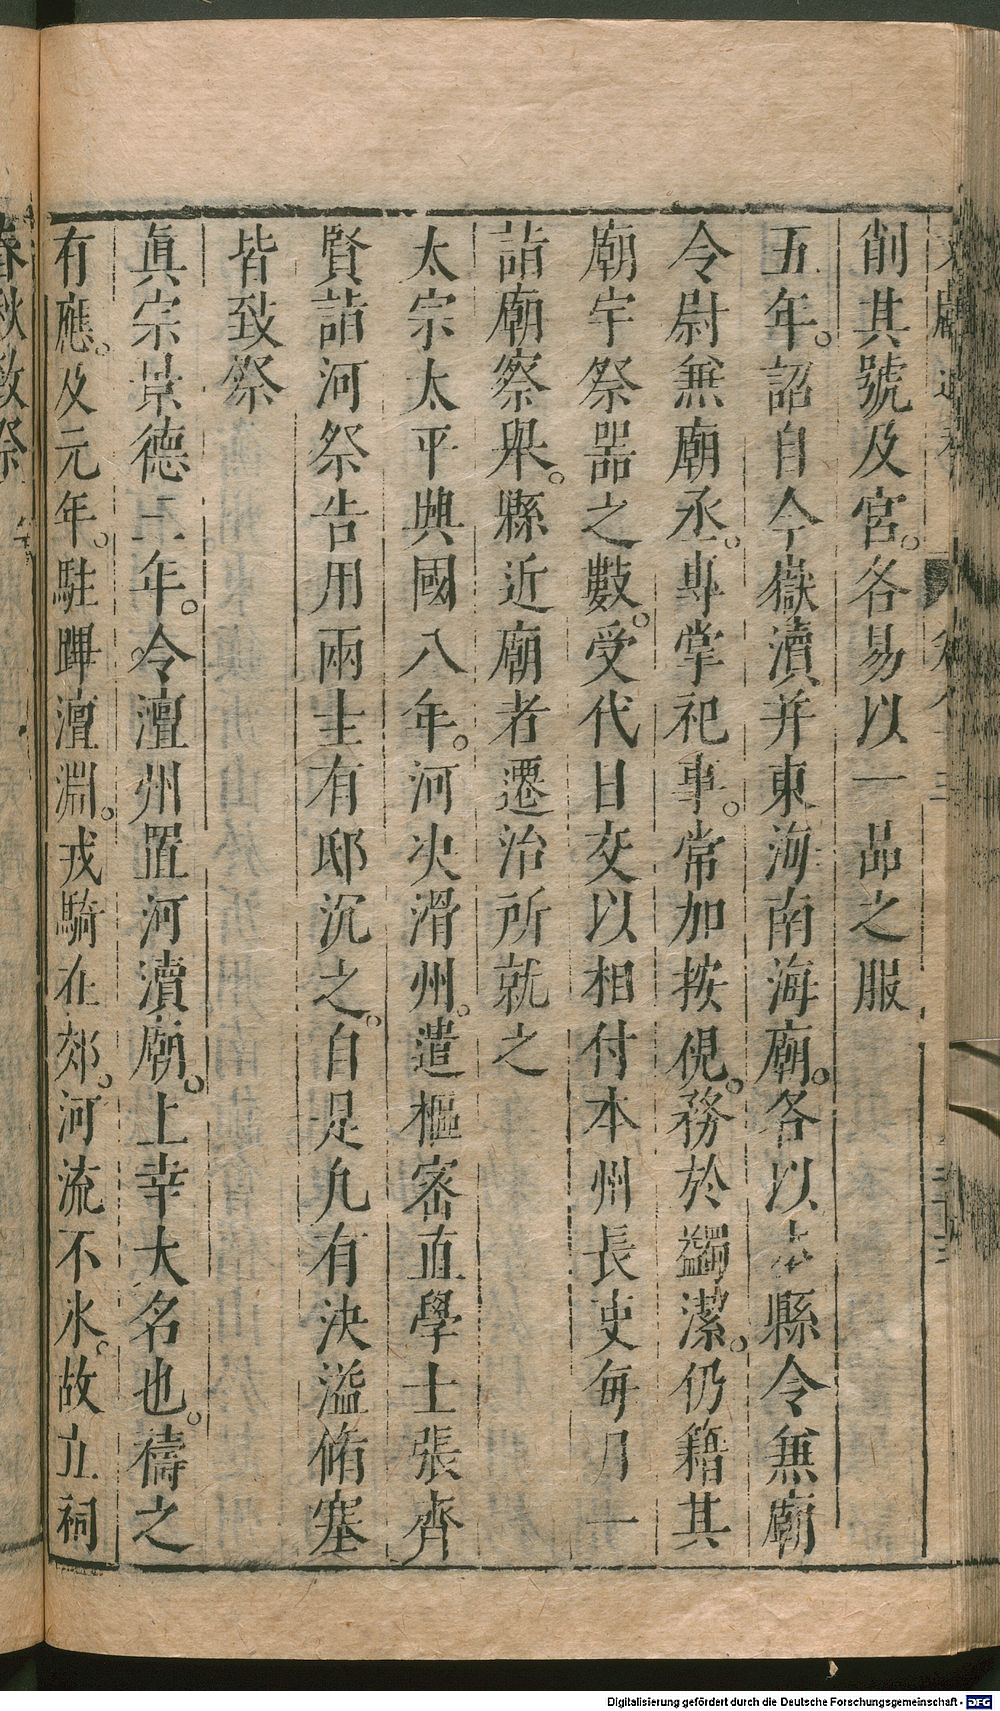 削其號及宮。各易以一品之服
五年。詔自今嶽瀆并東海南海廟。各以本縣令兼廟
令尉兼廟丞。專掌祀事。常加按視。務於蠲潔。仍籍其
廟宇祭器之數。受代日交以相付本州長吏每月一
詣廟察舉。縣近廟者遷治所就之
太宗太平興國八年。河决滑州。遣樞密直學士張齊
賢詣河祭告用兩圭有邸沉之。自是凢有決溢脩塞
皆致祭
眞宗景德二年。令澶州置河瀆廟。上幸大名也。禱之
有應。及元年。駐蹕澶淵。戎騎在郊。河流不氷。故立祠
春秋致祭
Digitalisierung gefördert durch die Deutsche Forschungsgemeinschaft - DFG